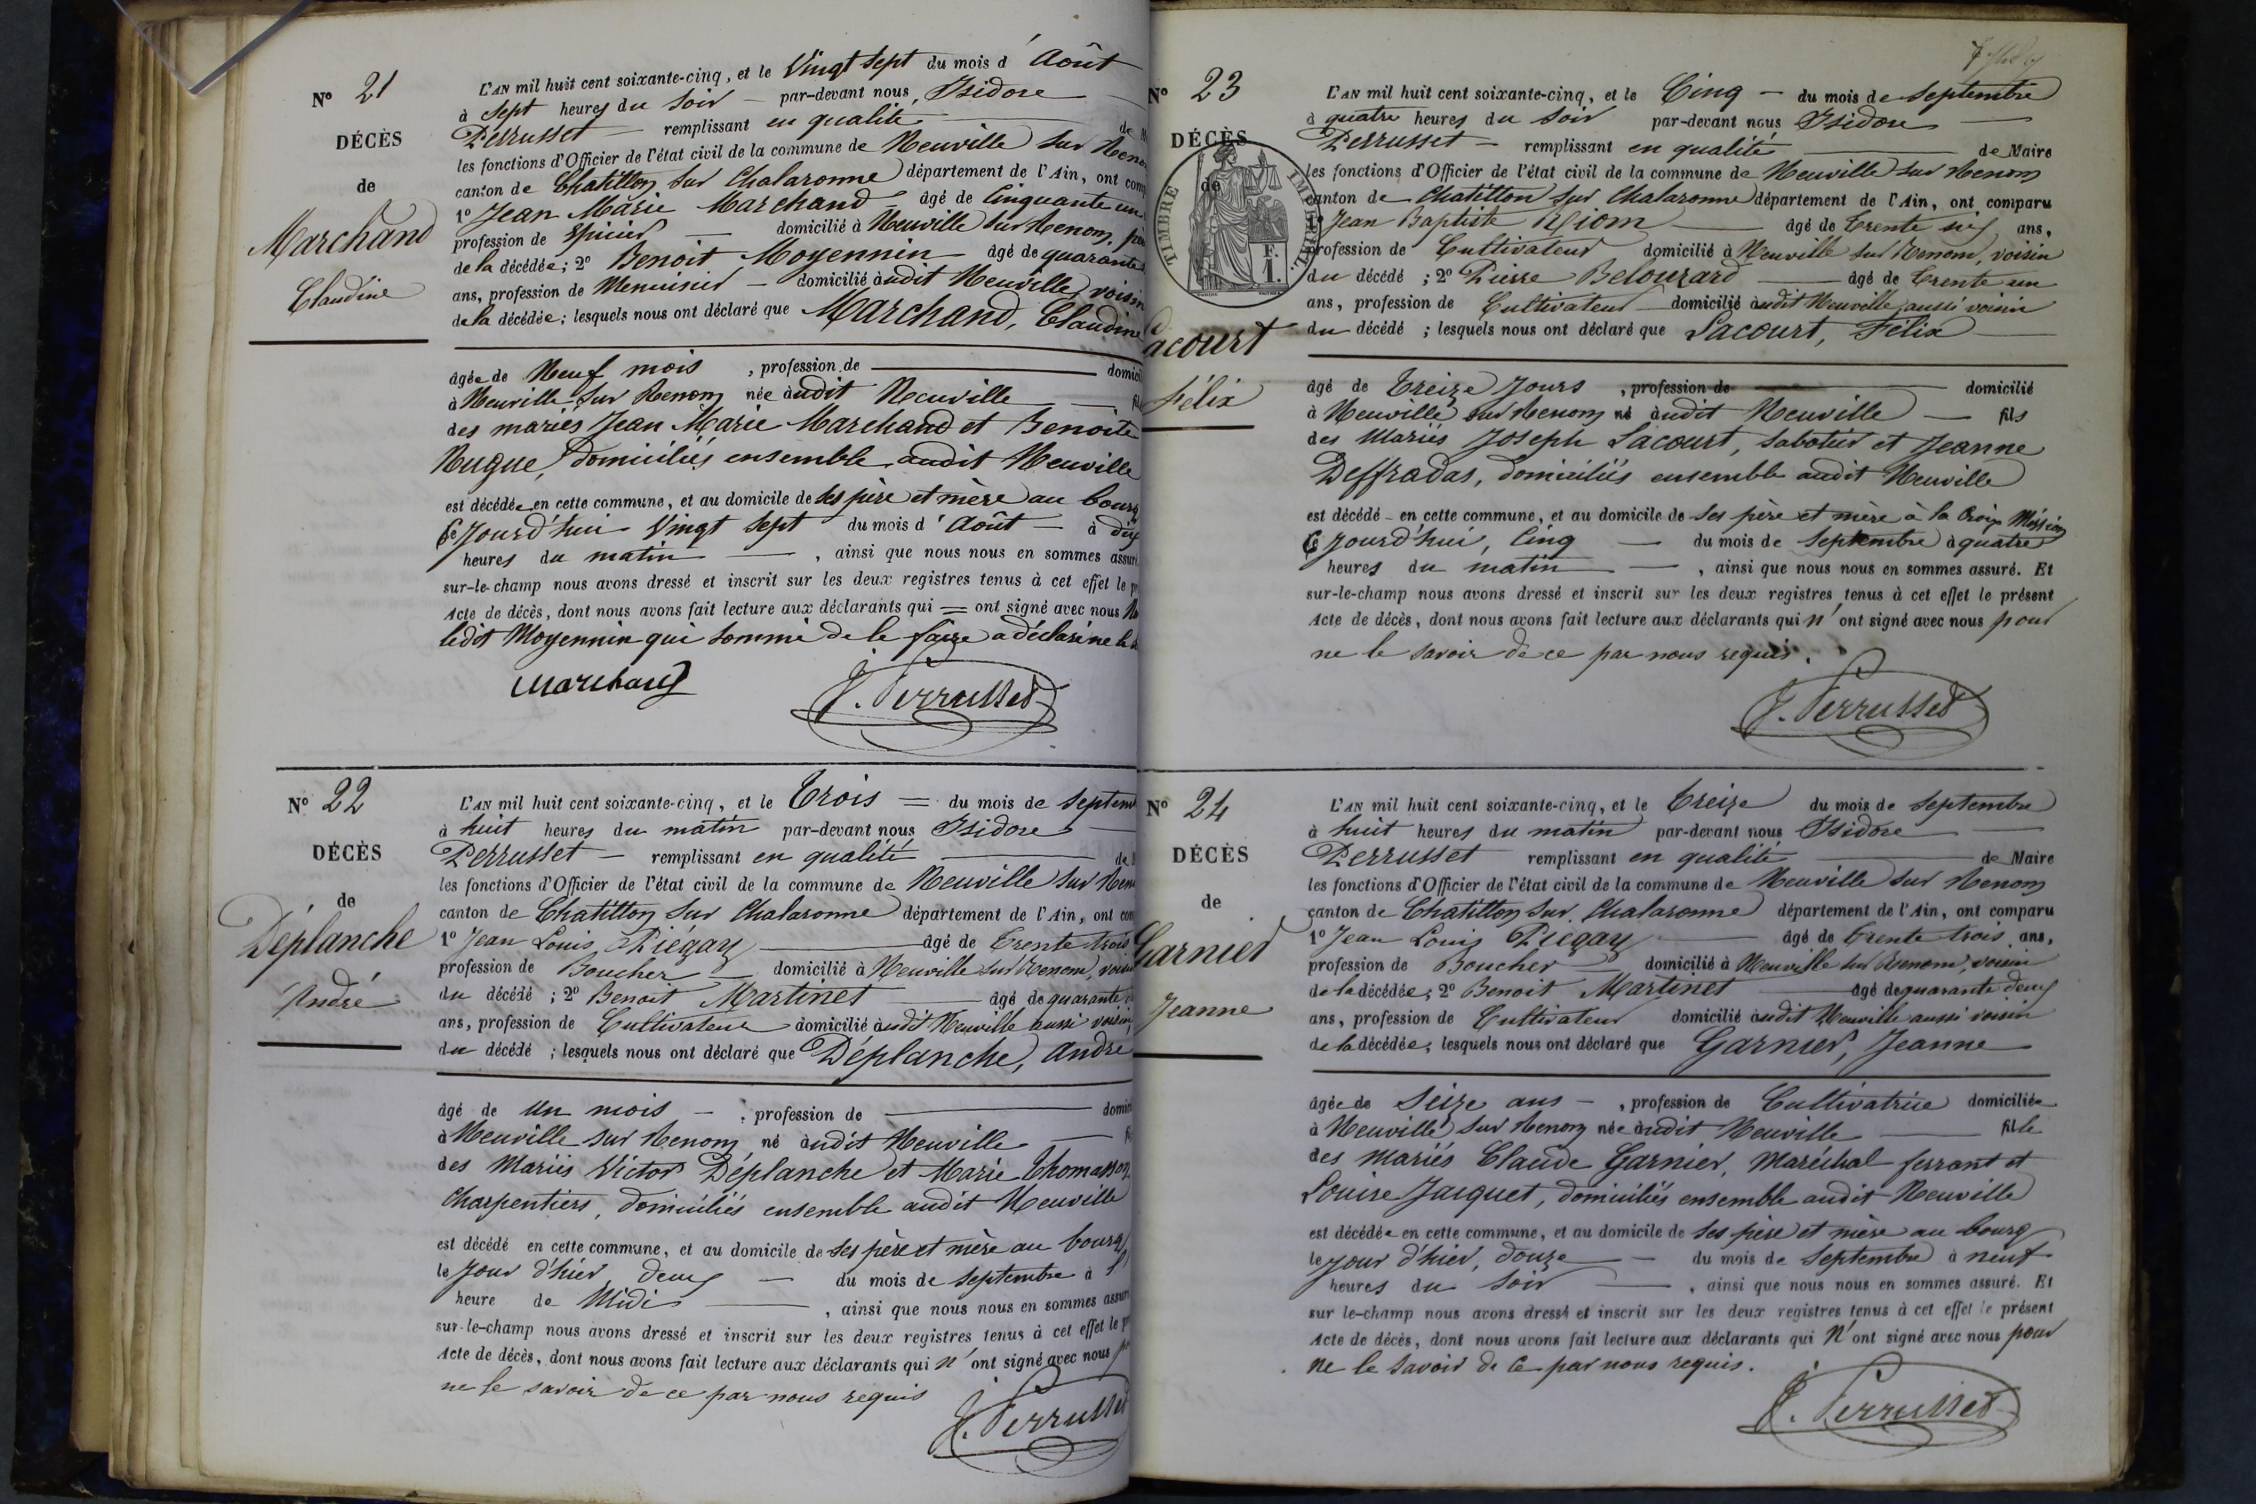 N° 21
DÉCÈS
de
Marchand
Claudine
L'AN mil huit cent soixante-cinq, et le Vingt Sept du mois d'Août
à Sept heures du Soir — par-devant nous, Isidore
Perrusset — remplissant en qualité de
les fonctions d'Officier de l'état civil de la commune de Neuville sur Renom
canton de Chatillon sur Chalaronne département de l'Ain, ont
1° Jean Marie Marchand — âgé de Cinquante un
profession de Epicier — domicilié à Neuville sur Renom,
de la décédée; 2° Benoit Moyennin âgé de quarante
ans, profession de Menuisier — domicilié àudit Neuville, voisin
de la décédée; lesquels nous ont déclaré que Marchand, Claudine
âgée de Neuf mois , profession de —
à Neuville sur Renom née àudit Neuville —
des mariés Jean Marie Marchand et Benoite
Nugue, domiciliés ensemble audit Neuville
est décédée en cette commune, et au domicile de ses père et mère au bourg
Ce Jourd'hui Vingt Sept du mois d'Août — à dix
heures du matin — , ainsi que nous nous en sommes assuré
sur-le-champ nous avons dressé et inscrit sur les deux registres tenus à cet effet le
Acte de décès, dont nous avons fait lecture aux déclarants qui = ont signé avec nous
ledit Moyennin qui sommé de le faire a déclaré ne le
Marchand
J. Perrusset
N° 22
DÉCÈS
de
Déplanche
André
L'AN mil huit cent soixante-cinq, et le Trois = du mois de Septembre
à huit heures du matin par-devant nous Isidore —
Perrusset — remplissant en qualité — de
les fonctions d'Officier de l'état civil de la commune de Neuville sur Renom
canton de Chatillon sur Chalaronne département de l'Ain, ont
1° Jean Louis Piégay — âgé de Trente trois
profession de Boucher — domicilié à Neuville sur Renom, voisin
du décédé ; 2° Benoit Martinet — âgé de quarante
ans, profession de Cultivateur domicilié àudit Neuville aussi voisin
du décédé ; lesquels nous ont déclaré que Déplanche, André
âgé de Un mois — , profession de —
à Neuville sur Renom né àudit Neuville —
des Mariés Victor Déplanche et Marie Thomasson,
Charpentiers, domiciliés ensemble audit Neuville
est décédé en cette commune, et au domicile de ses père et mère au bourg
le jour d'hier, deux — du mois de Septembre à
heure de Midi — , ainsi que nous nous en sommes assuré
sur-le-champ nous avons dressé et inscrit sur les deux registres tenus à cet effet le
Acte de décès, dont nous avons fait lecture aux déclarants qui n'ont signé avec nous
ne le savoir de ce par nous requis
J. Perrusset
N° 23
DÉCÈS
de
TIMBRE IMPÉRIAL
F.
1.
Lacourt
Félix
L'AN mil huit cent soixante-cinq, et le Cinq — du mois de Septembre
à quatre heures du Soir par-devant nous Isidore —
Perrusset — remplissant en qualité — de Maire
les fonctions d'Officier de l'état civil de la commune de Neuville sur Renom
canton de Chatillon sur Chalaronne département de l'Ain, ont comparu
1° Jean Baptiste Riom — âgé de Trente six ans,
profession de Cultivateur domicilié à Neuville sur Renom, voisin
du décédé ; 2° Pierre Belouzard — âgé de Trente un
ans, profession de Cultivateur domicilié àudit Neuville, aussi voisin
du décédé ; lesquels nous ont déclaré que Lacourt, Félix —
âgé de Treize Jours , profession de — domicilié
à Neuville sur Renom né àudit Neuville — fils
des Mariés Joseph Lacourt, Sabotier et Jeanne
Deffradas, domiciliés ensemble audit Neuville
est décédé en cette commune, et au domicile de ses père et mère à la Croix Mission
Ce Jourd'hui, Cinq — du mois de Septembre à quatre
heures du matin — , ainsi que nous nous en sommes assuré. Et
sur-le-champ nous avons dressé et inscrit sur les deux registres tenus à cet effet le présent
Acte de décès, dont nous avons fait lecture aux déclarants qui n'ont signé avec nous pour
ne le savoir de ce par nous requis.
J. Perrusset
N° 24
DÉCÈS
de
Garnier
Jeanne
L'AN mil huit cent soixante-cinq, et le Treize du mois de Septembre
à huit heures du matin par-devant nous Isidore —
Perrusset remplissant en qualité — de Maire
les fonctions d'Officier de l'état civil de la commune de Neuville sur Renom
canton de Chatillon sur Chalaronne département de l'Ain, ont comparu
1° Jean Louis Piégay — âgé de Trente trois ans,
profession de Boucher — domicilié à Neuville sur Renom, voisin
de la décédée; 2° Benoit Martinet — âgé de quarante deux
ans, profession de Cultivateur domicilié àudit Neuville aussi voisin
de la décédée, lesquels nous ont déclaré que Garnier, Jeanne
âgée de Seize ans — , profession de Cultivatrice domiciliée
à Neuville sur Renom née àudit Neuville — fille
des mariés Claude Garnier, Maréchal ferrant et
Louise Jacquet, domiciliés ensemble audit Neuville
est décédée en cette commune, et au domicile de ses père et mère au bourg
le jour d'hier, douze — du mois de Septembre à neuf
heures du Soir — , ainsi que nous nous en sommes assuré. Et
sur le-champ nous avons dressé et inscrit sur les deux registres tenus à cet effet le présent
Acte de décès, dont nous avons fait lecture aux déclarants qui n'ont signé avec nous pour
ne le savoir de ce par nous requis.
J. Perrusset